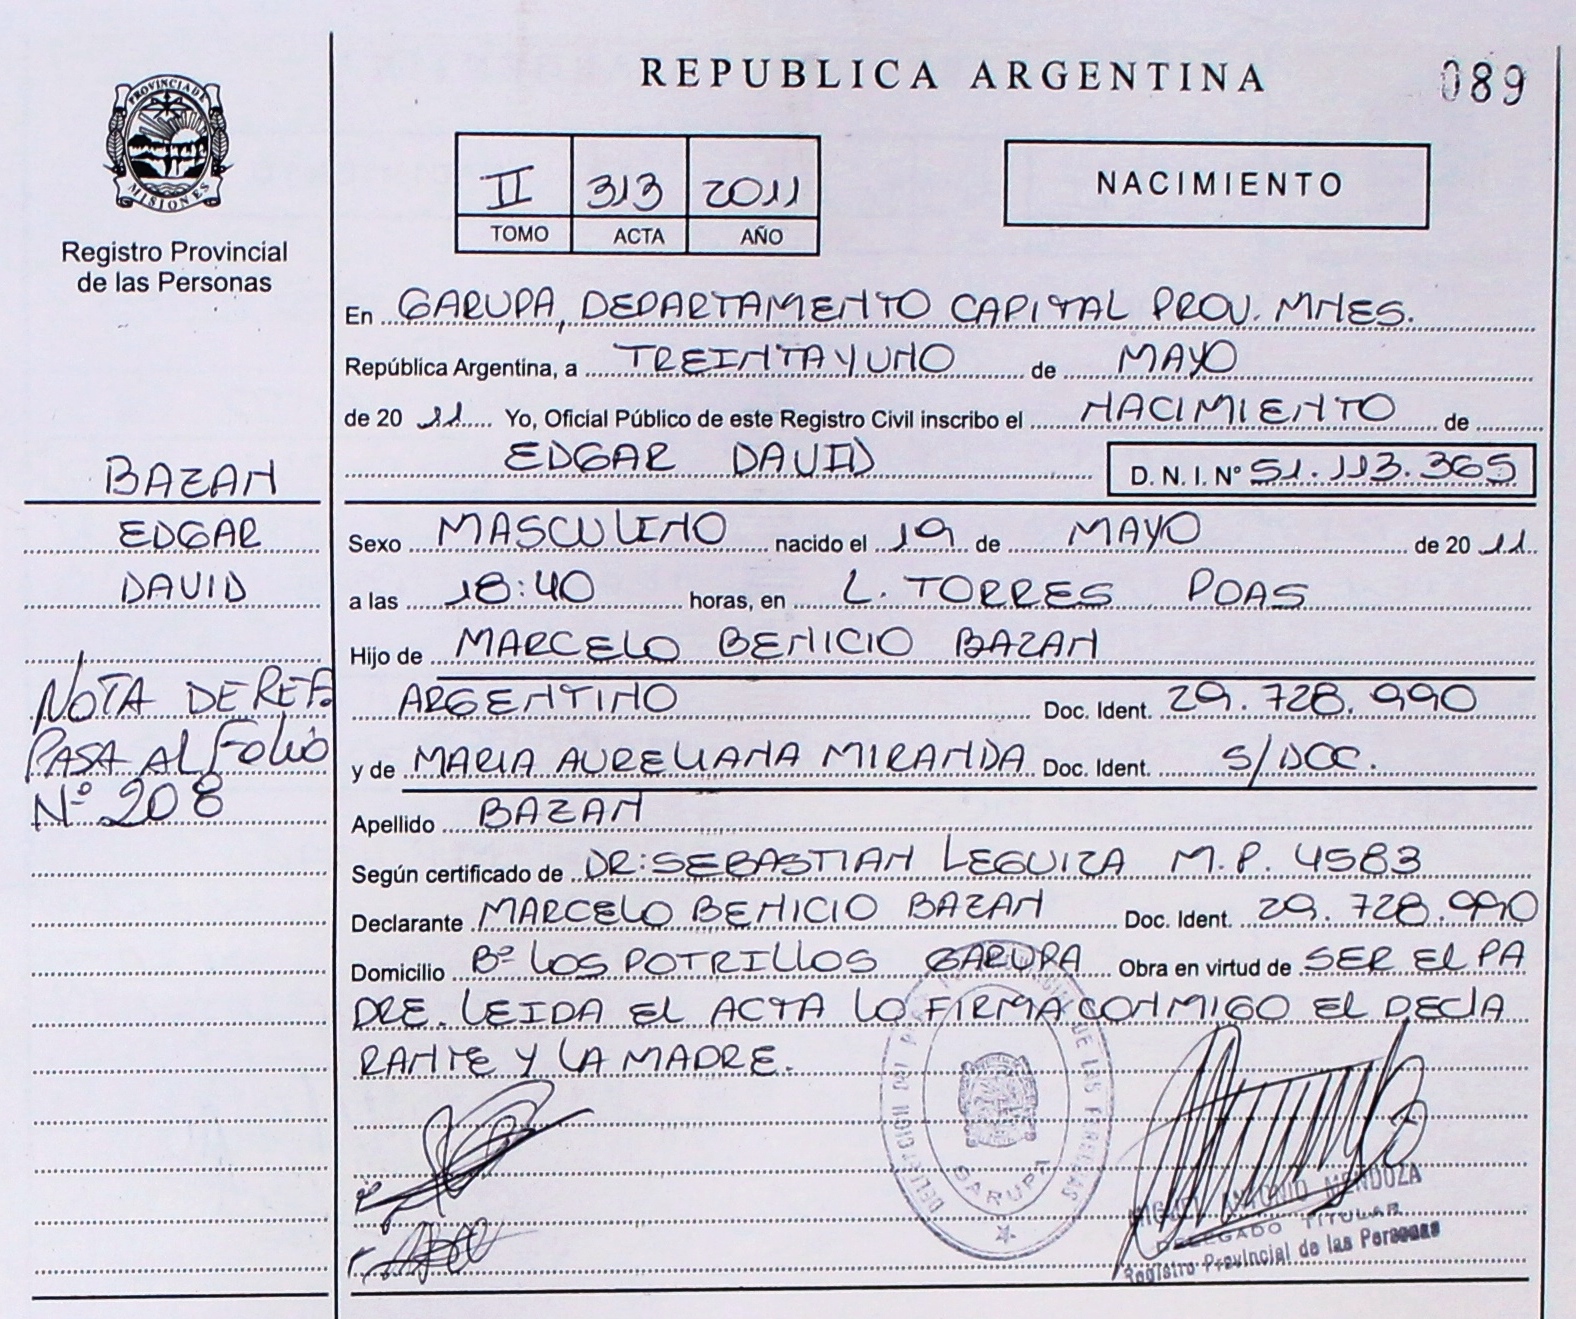 REPUBLICA ARGENTINA
089
PROVINCIA DE
MISIONES
Registro Provincial
de las Personas
II 313 2011
TOMO ACTA AÑO
NACIMIENTO
En GARUPA, DEPARTAMENTO CAPITAL PROV. MNES.
República Argentina, a TREINTA Y UNO de MAYO
de 20 11 Yo, Oficial Público de este Registro Civil inscribo el NACIMIENTO de
EDGAR DAVID D. N. I. N° 51.113.365
BAZAN
EDGAR
DAVID
Sexo MASCULINO nacido el 19 de MAYO de 20 11
a las 18:40 horas, en L. TORRES PDAS
Hijo de MARCELO BENICIO BAZAN
ARGENTINO Doc. Ident. 29.728.990
y de MARIA AURELIANA MIRANDA Doc. Ident. S/DOC.
NOTA DE REF.
PASA AL FOLIO
Nº 208
Apellido BAZAN
Según certificado de DR: SEBASTIAN LEGUIZA M.P. 4583
Declarante MARCELO BENICIO BAZAN Doc. Ident. 29.728.990
Domicilio Bº LOS POTRILLOS GARUPA Obra en virtud de SER EL PA
DRE. LEIDA EL ACTA LO FIRMA CONMIGO EL DECLA
RANTE Y LA MADRE.
DE LAS PERSONAS
GARUPA
MIGUEL ANTONIO MENDOZA
DELEGADO TITULAR
Registro Provincial de las Personas